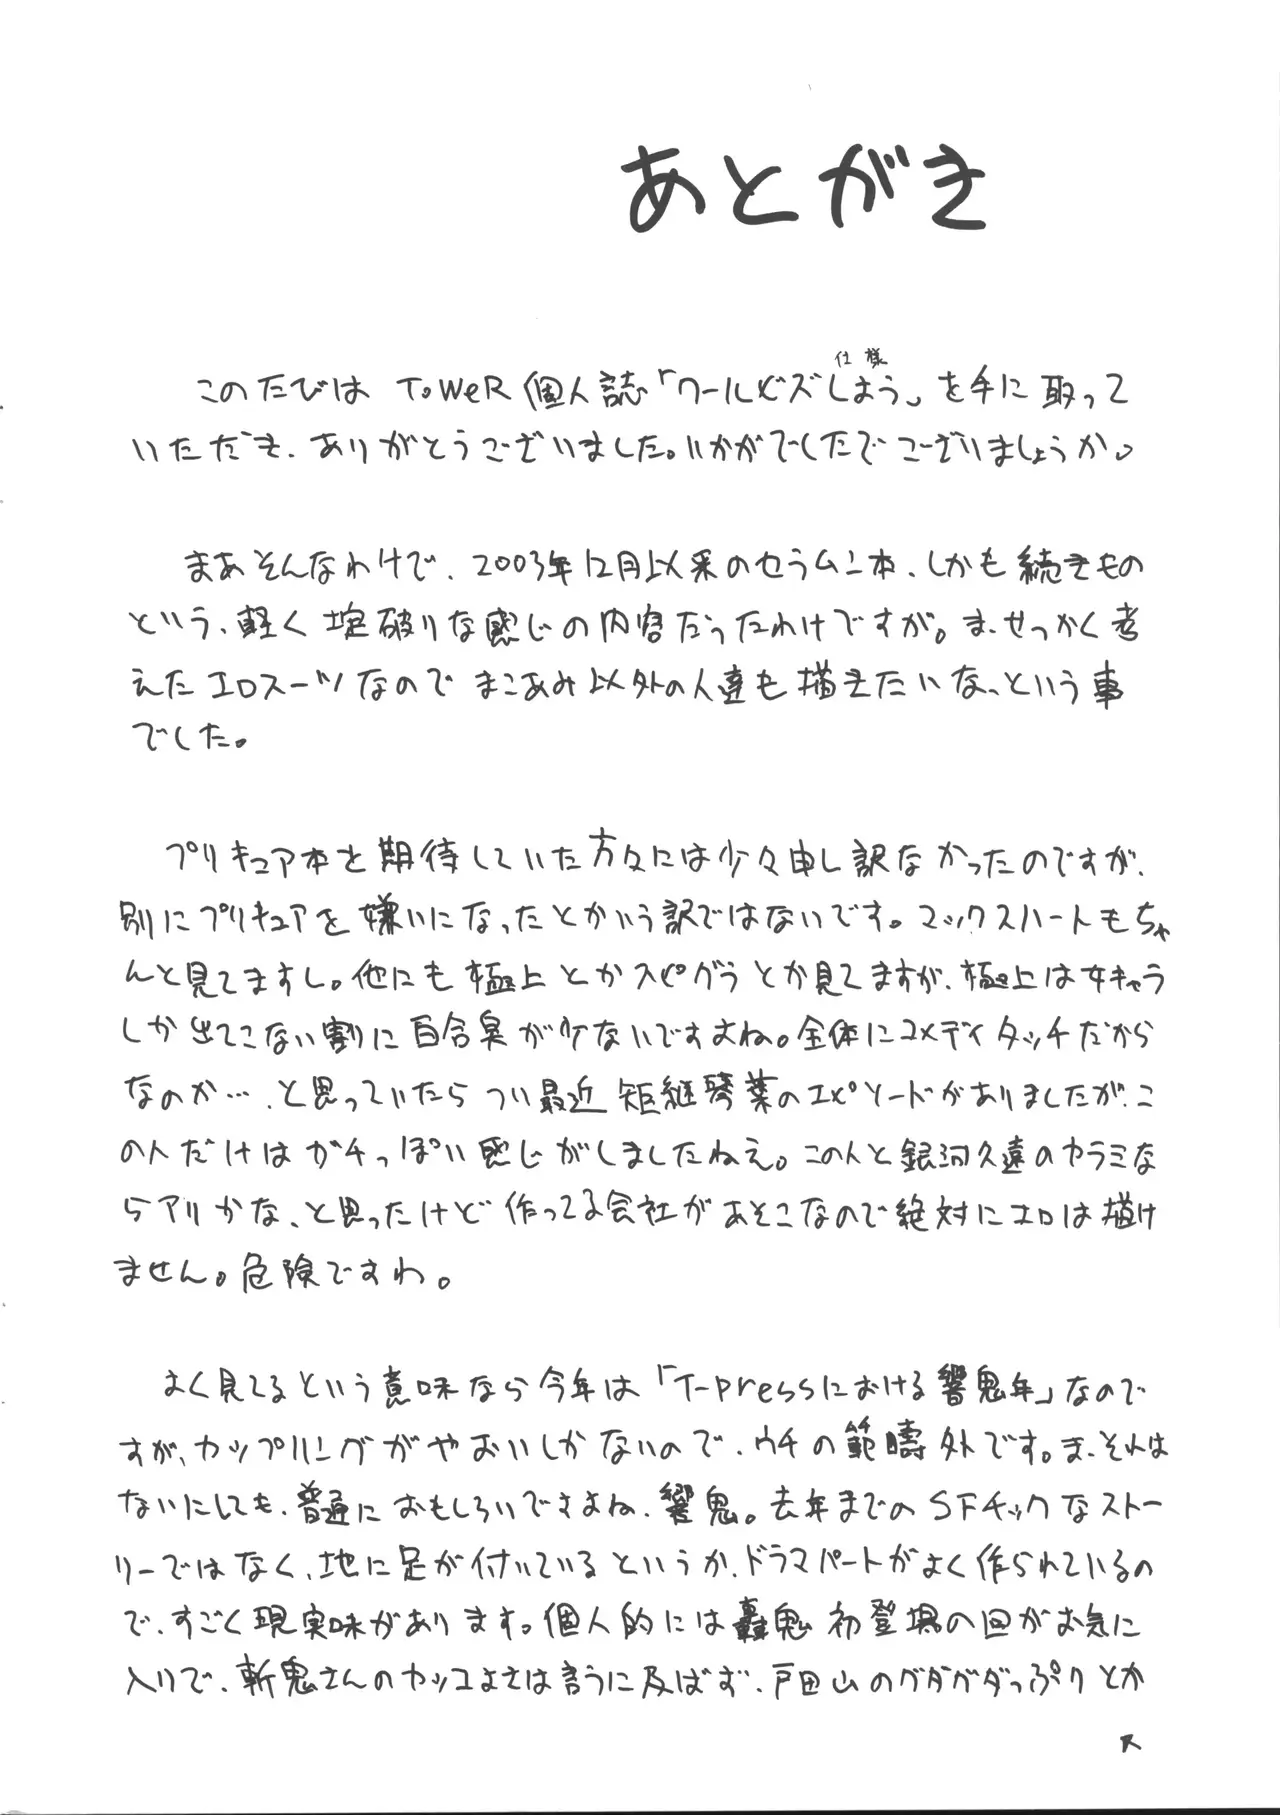 あとがき
仕様
このたびは ToWeR個人誌「ワールドズしよう」を手に取って
いただき、ありがとうございました。いかがでしたでございましょうか。
まあそんなわけで、2003年12月以来のセラムン本、しかも続きもの
という、軽く掟破りな感じの内容だったわけですが。ま、せっかく考
えたエロスーツなのでまこあみ以外の人達も描きたいなっという事
でした。
プリキュア本を期待していた方々には少々申し訳なかったのですが、
別にプリキュアを嫌いになったとかいう訳ではないです。マックスハートもちゃ
んと見てますし。他にも極上とかスピグラとか見てますが、極上は女キャラ
しか出てこない割に百合臭が少ないですよね。全体にコメディタッチだから
なのか…、と思っていたらつい最近矩継琴葉のエピソードがありましたが、こ
の人だけはガチっぽい感じがしましたねえ。この人と銀河久遠のカラミな
らアリかな、と思ったけど作ってる会社があそこなので絶対にエロは描け
ません。危険ですわ。
よく見てるという意味なら今年は「T-pressにおける響鬼年」なので
すが、カップリングがやおいしかないので、ウチの範疇外です。ま、それは
ないにしても、普通におもしろいですよね、響鬼。去年までのSFチックなストー
リーではなく、地に足が付いているというか、ドラマパートがよく作られているの
で、すごく現実味があります。個人的には轟鬼初登場の回がお気に
入りで、斬鬼さんのカッコよさは言うに及ばず、戸田山のグダグダっぷりとか